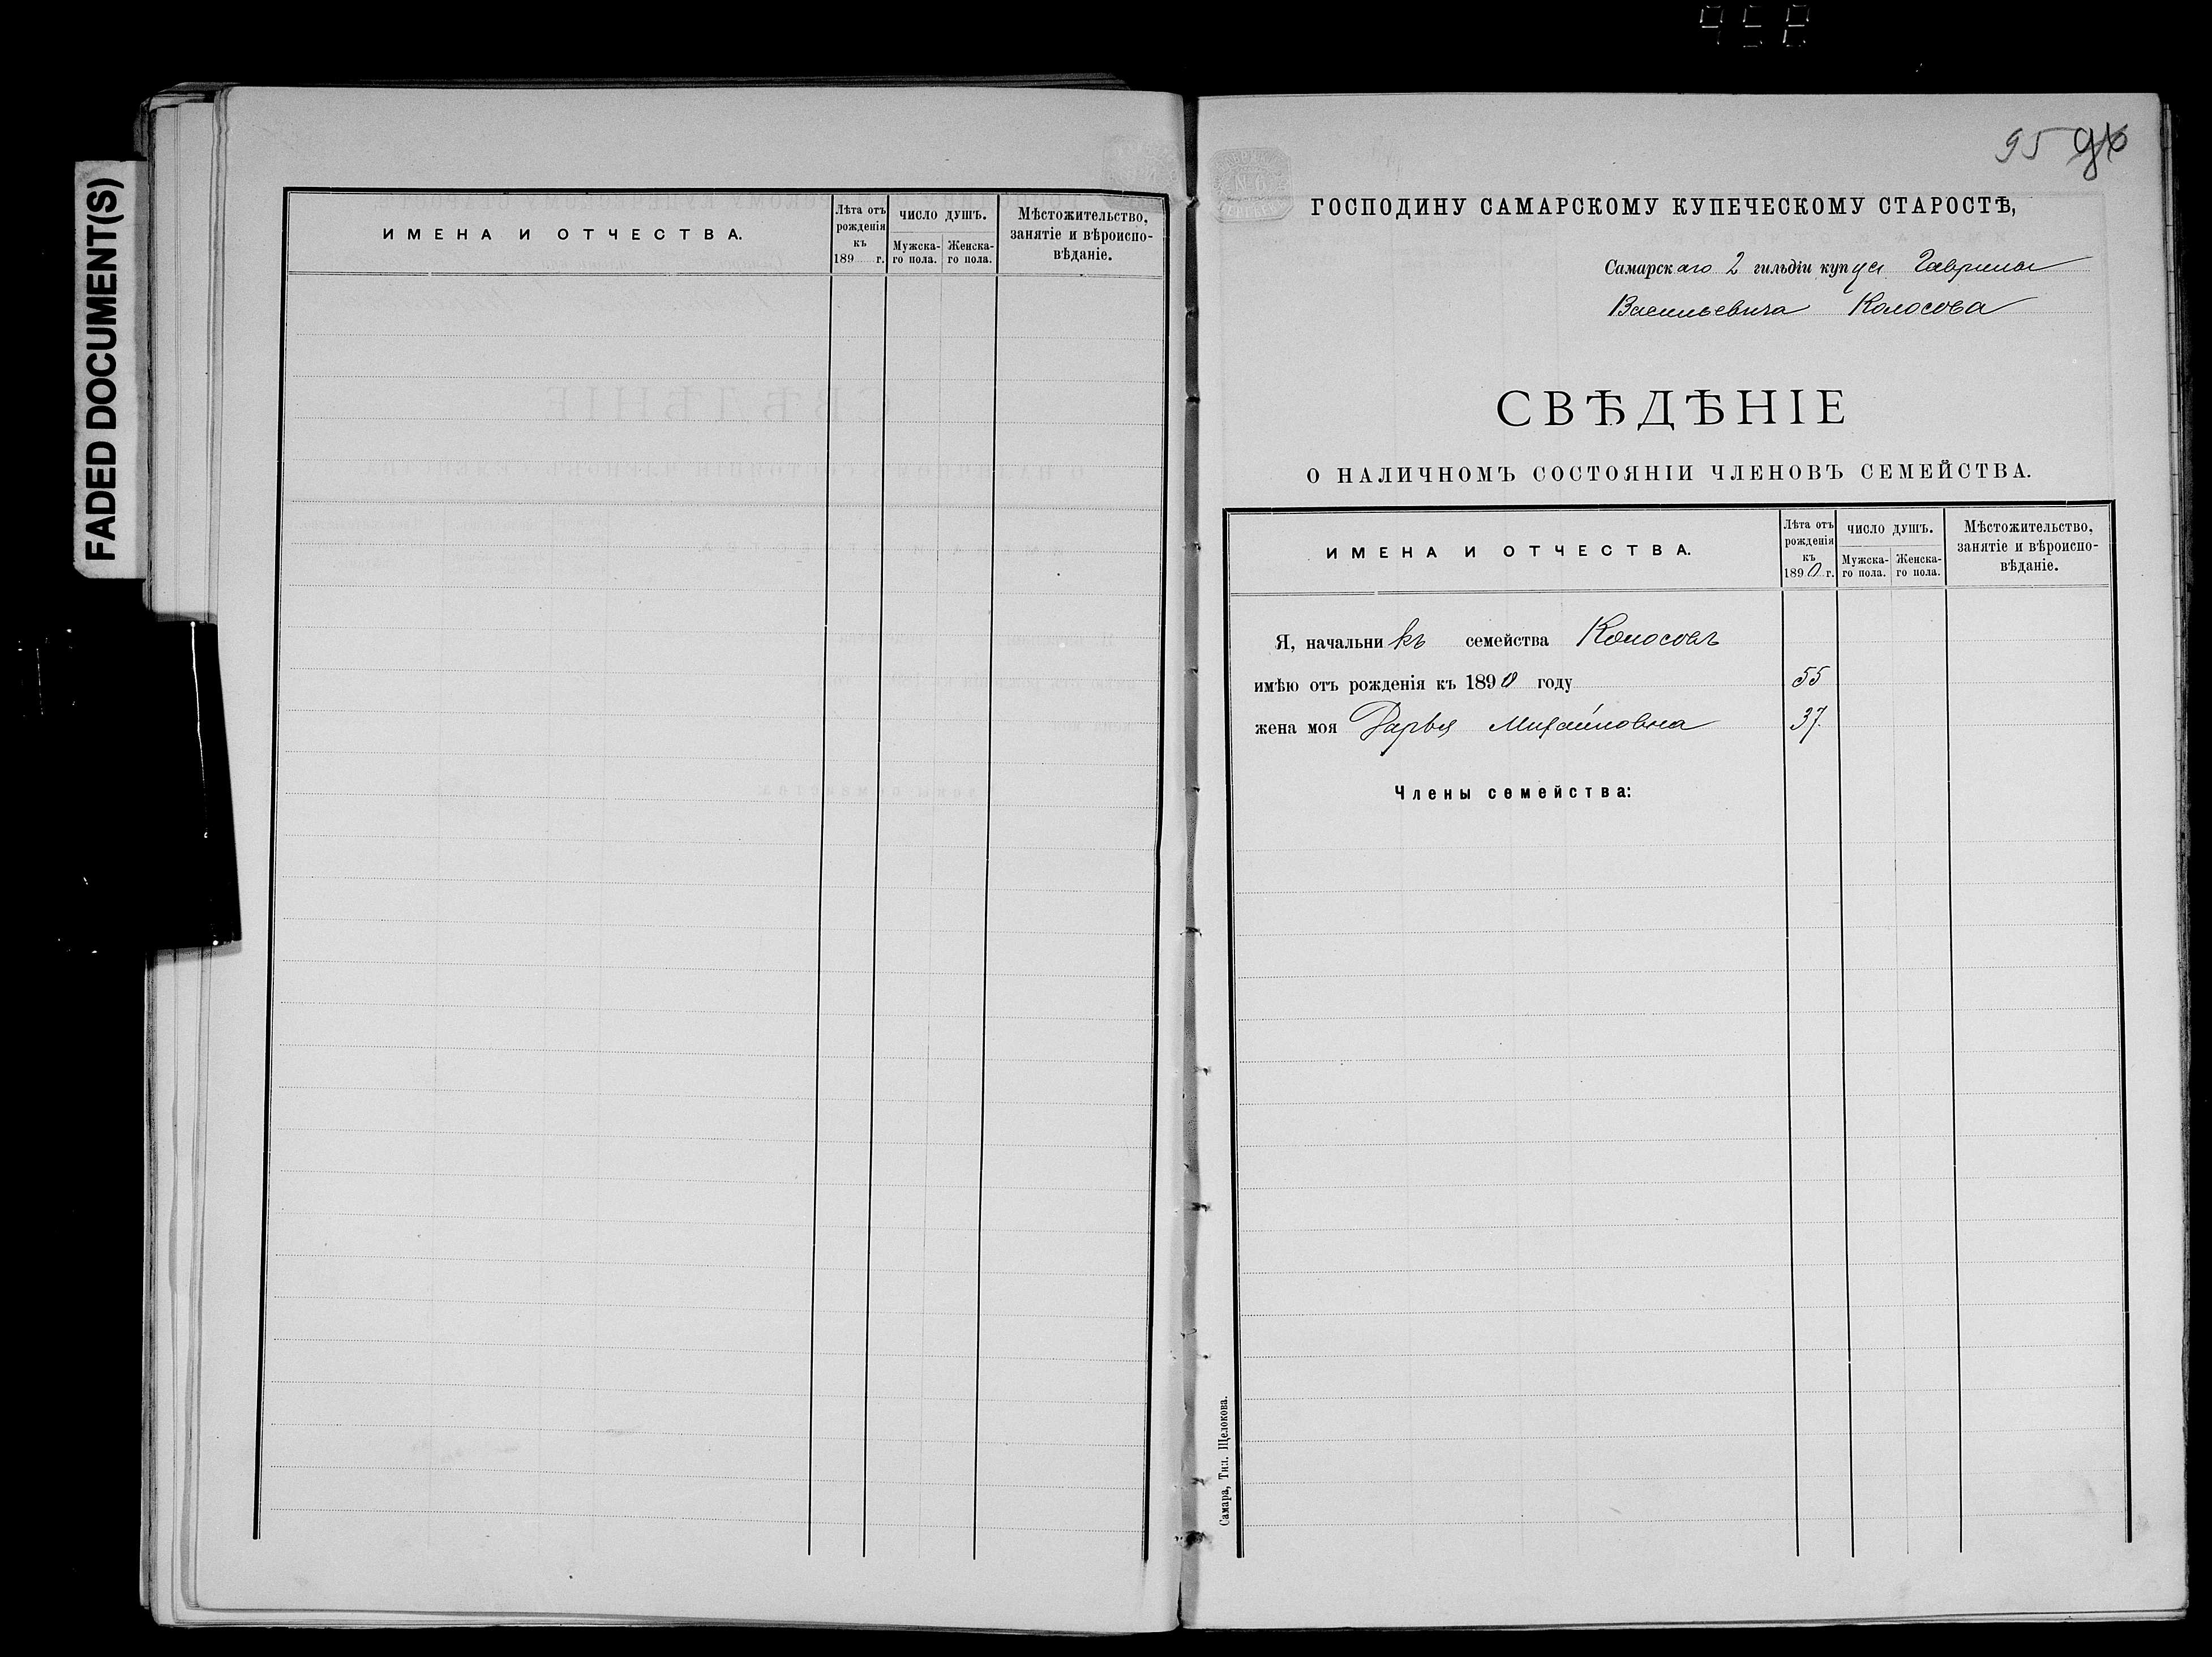 958
FADED DOCUMENT(S)
ИМЕНА И ОТЧЕСТВА.
Лѣта отъ рожденія къ 189 г.
ЧИСЛО ДУШЪ.
Мужска-го пола.
Женска-го пола.
Мѣстожительство, занятіе и вѣроиспо-вѣданіе.
95 96
ГОСПОДИНУ САМАРСКОМУ КУПЕЧЕСКОМУ СТАРОСТѢ,
Самарскаго 2 гильдіи купца Гаврилы
Васильевича Колосова
СВѢДѢНІЕ
О НАЛИЧНОМЪ СОСТОЯНІИ ЧЛЕНОВЪ СЕМЕЙСТВА.
ИМЕНА И ОТЧЕСТВА.
Лѣта отъ рожденія къ 1890 г.
ЧИСЛО ДУШЪ.
Мужска-го пола.
Женска-го пола.
Мѣстожительство, занятіе и вѣроиспо-вѣданіе.
Я, начальникъ семейства Колосовъ
имѣю отъ рожденія къ 1890 году 55
жена моя Дарья Михайловна 37.
Члены семейства:
Самара, Тип. Щелокова.